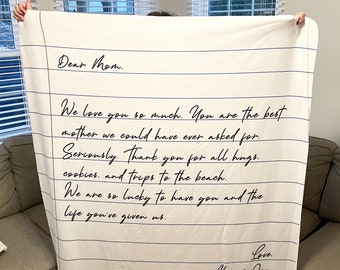 Dear Mom,
We love you so much. You are the best
mother we could have ever asked for.
Seriously. Thank you for all hugs,
cookies, and trips to the beach.
We are so lucky to have you and the
life you've given us.
Love,